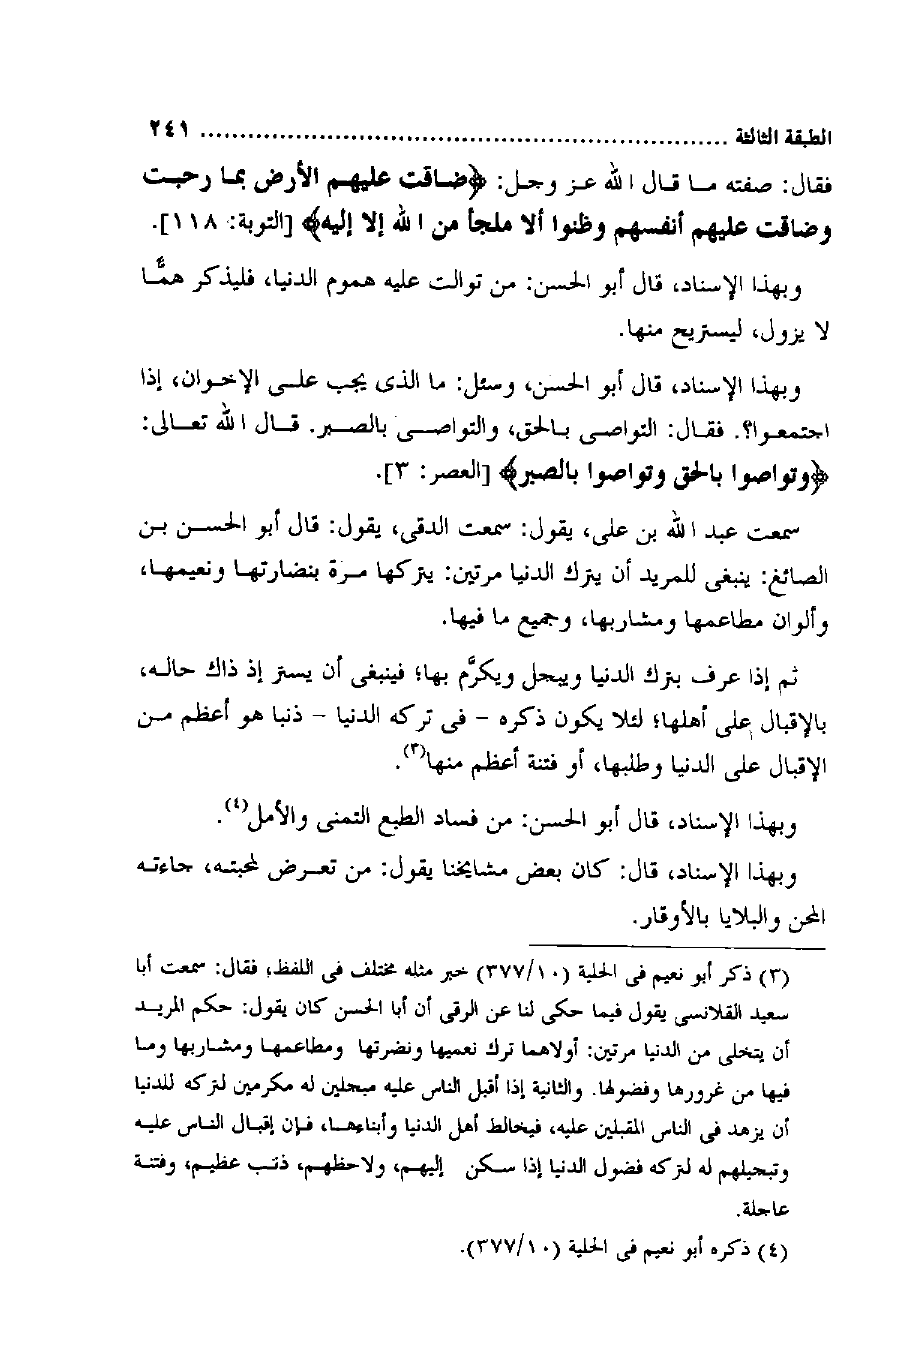 الطبقة الثالثة ................................................................... ٢٤١
فقال: صفته ما قال الله عز وجل: ﴿ضاقت عليهم الأرض بما رحبت
وضاقت عليهم أنفسهم وظنوا ألا ملجأ من الله إلا إليه﴾ [التوبة: ١١٨].
وبهذا الإسناد، قال أبو الحسن: من توالت عليه هموم الدنيا، فليذكر همًّا
لا يزول، ليستريح منها.
وبهذا الإسناد، قال أبو الحسن، وسئل: ما الذى يجب على الإخوان، إذا
اجتمعوا؟. فقال: التواصى بالحق، والتواصى بالصبر. قال الله تعالى:
﴿وتواصوا بالحق وتواصوا بالصبر﴾ [العصر: ٣].
سمعت عبد الله بن على، يقول: سمعت الدقى، يقول: قال أبو الحسن بن
الصائغ: ينبغى للمريد أن يترك الدنيا مرتين: يتركها مرة بنضارتها ونعيمها،
وألوان مطاعمها ومشاربها، وجميع ما فيها.
ثم إذا عرف بترك الدنيا ويبجل ويكرَّم بها؛ فينبغى أن يستر إذ ذاك حاله،
بالإقبال على أهلها؛ لئلا يكون ذكره - فى تركه الدنيا - ذنبا هو أعظم من
الإقبال على الدنيا وطلبها، أو فتنة أعظم منها(٣).
وبهذا الإسناد، قال أبو الحسن: من فساد الطبع التمنى والأمل(٤).
وبهذا الإسناد، قال: كان بعض مشايخنا يقول: من تعرض لمحبته، جاءته
المحن والبلايا بالأوقار.
(٣) ذكر أبو نعيم فى الحلية (٣٧٧/١٠) خبر مثله مختلف فى اللفظ؛ فقال: سمعت أبا
سعيد القلانسى يقول فيما حكى لنا عن الرقى أن أبا الحسن كان يقول: حكم المريد
أن يتخلى من الدنيا مرتين: أولاهما ترك نعميها ونضرتها ومطاعمها ومشاربها وما
فيها من غرورها وفضولها. والثانية إذا أقبل الناس عليه مبجلين له مكرمين لتركه للدنيا
أن يزهد فى الناس المقبلين عليه، فيخالط أهل الدنيا وأبناءها، فإن إقبال الناس عليه
وتبجيلهم له لتركه فضول الدنيا إذا سكن إليهم، ولاحظهم، ذنب عظيم، وفتنة
عاجلة.
(٤) ذكره أبو نعيم فى الحلية (٣٧٧/١٠).